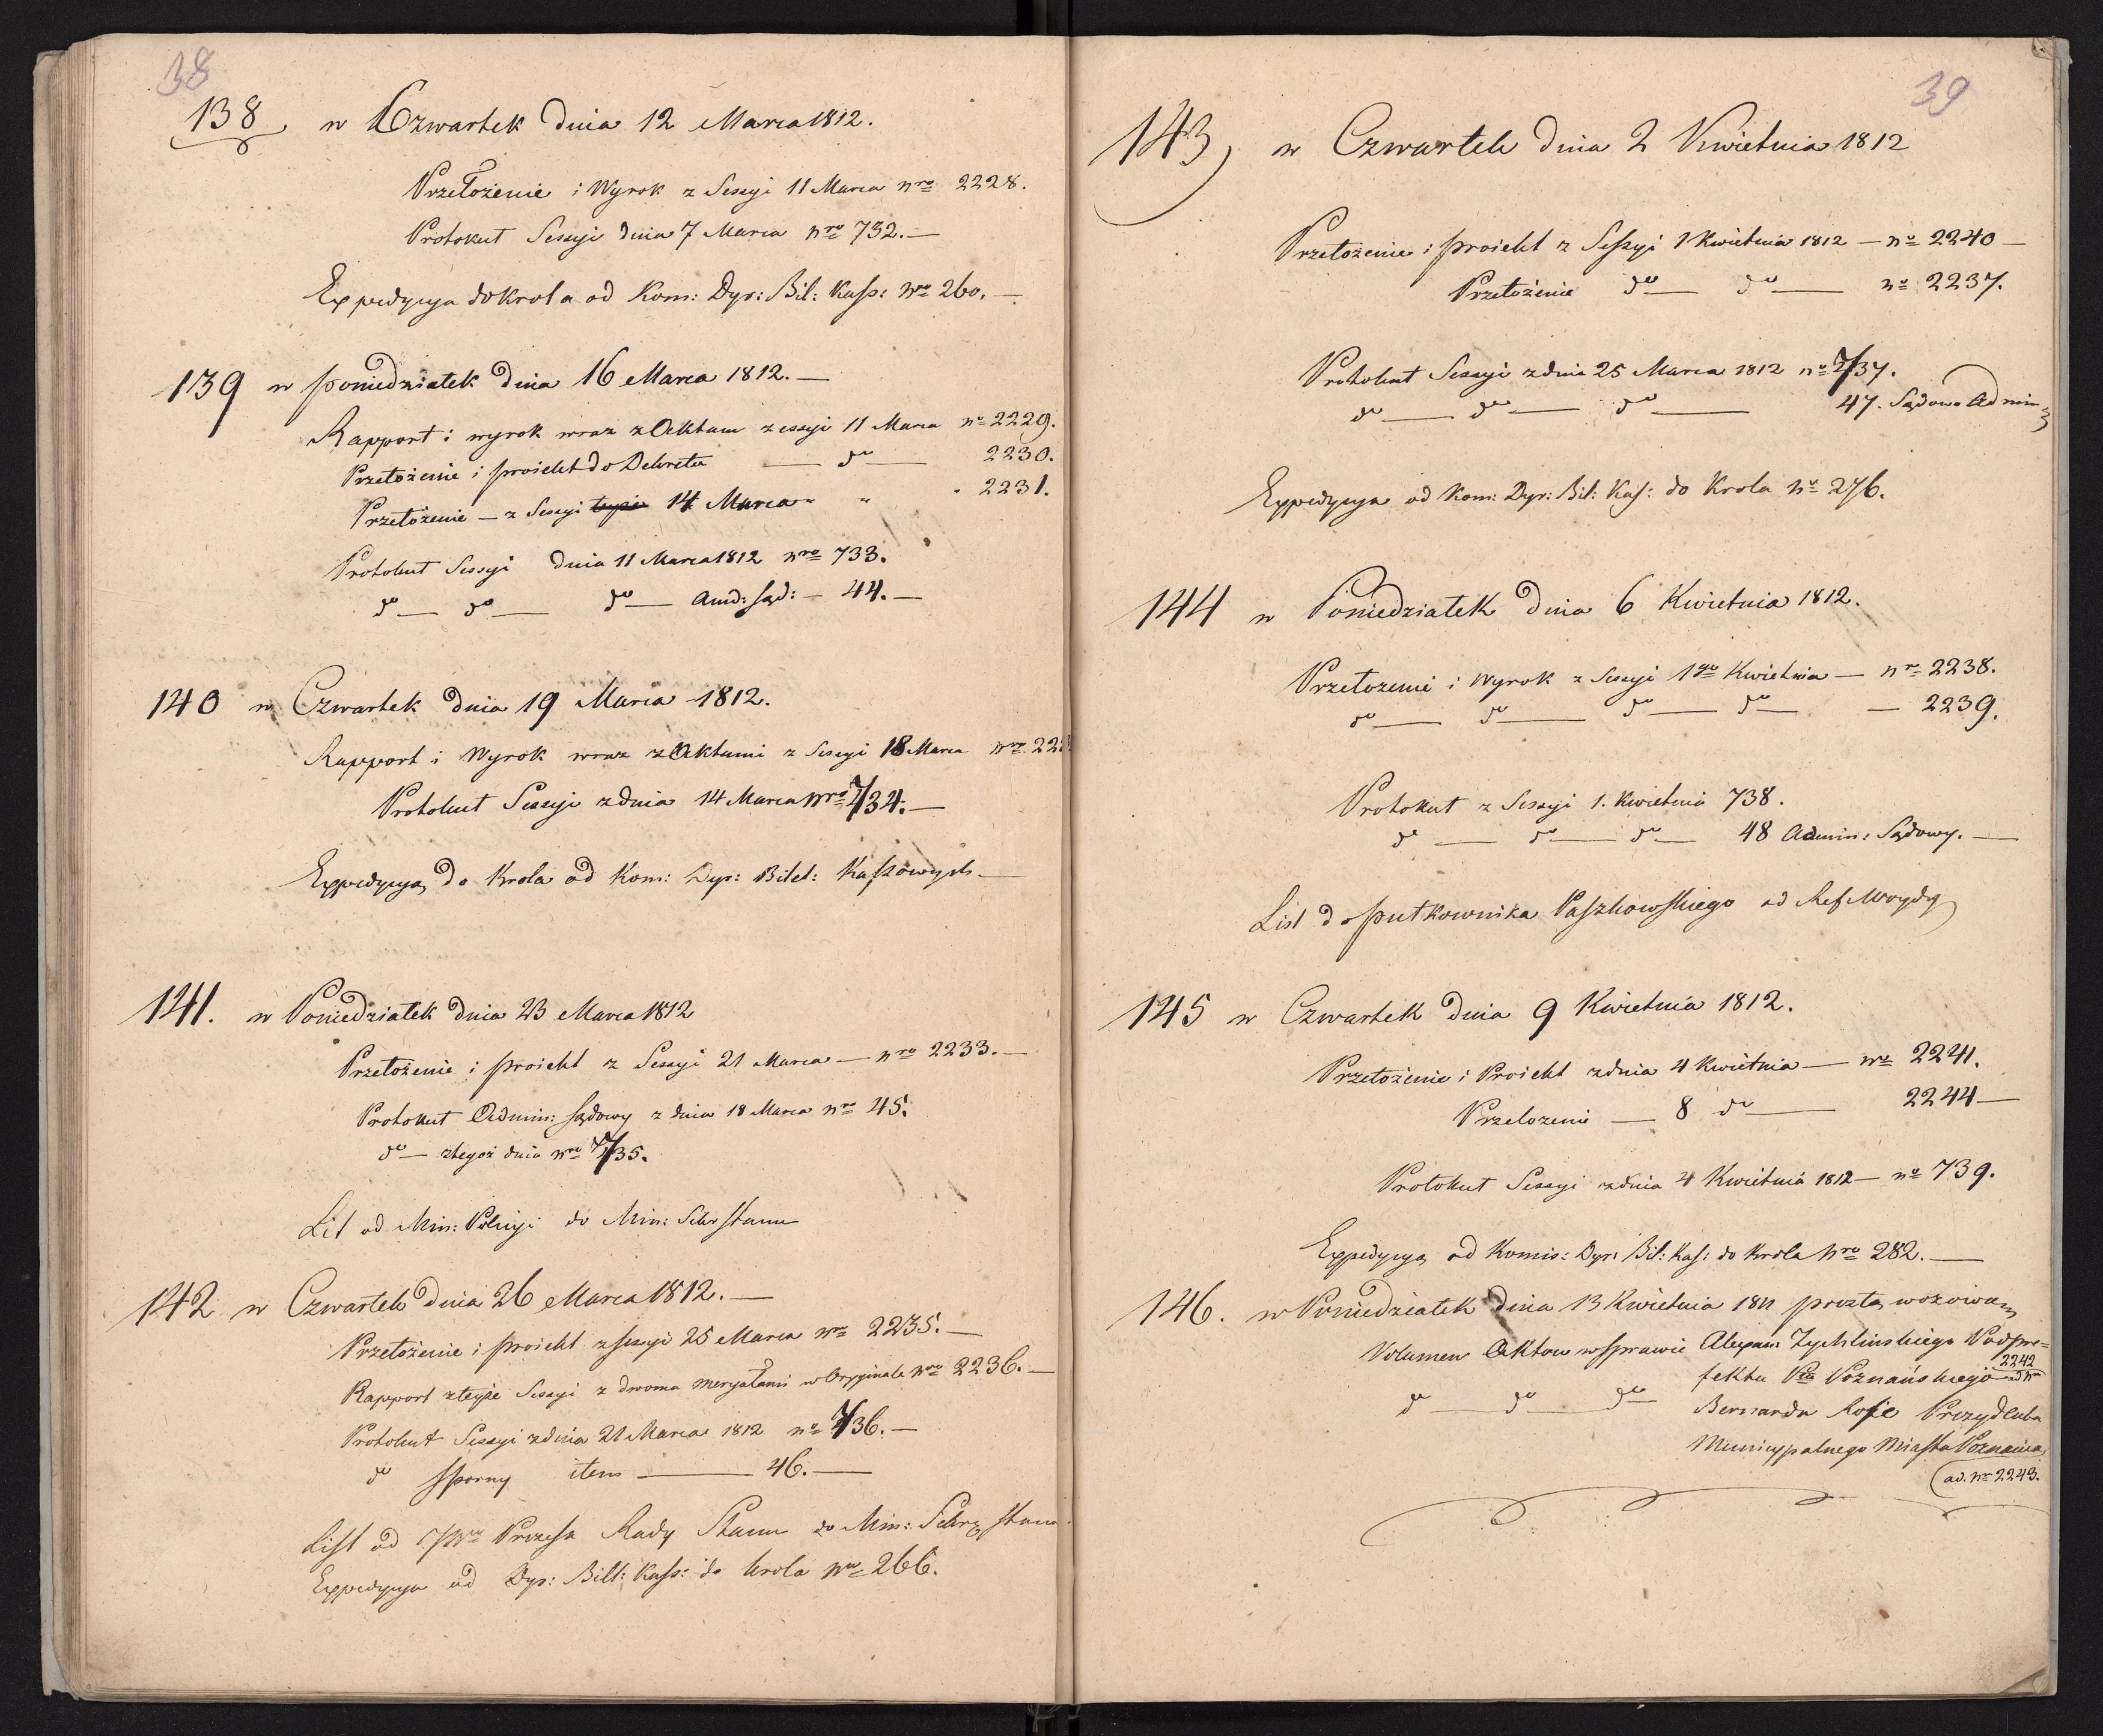 38
138 w Czwartek dnia 12 Marca 1812.
Przełożenie i Wyrok z Sessyi 11 Marca nro 2228.
Protokuł Sessyi dnia 7 Marca nro 732. —
Expedycya do Krola od Kom: Dyr: Bil: Kass: Nro 260. —
139 w poniedziałek dnia 16 Marca 1812. —
Rapport i wyrok wraz z Aktam z essyi 11 Marca no 2229.
Przełożenie i proiekt do Dekretu — do — 2230.
Przełożenie — z Sessyi teyże 14 Marca " " " 2231.
Protokuł Sessyi dnia 11 Marca 1812 nro 733.
do — do — do — Amd: sąd: — 44. —
140 w Czwartek dnia 19 Marca 1812.
Rapport i Wyrok wraz z Aktami z Sessyi 18 Marca nro 223
Protokuł Sessyi z dnia 14 Marca nro 734. —
Expedycya do Krola od Kom: Dyr: Bilet: Kassowych —
141. w Poniedziałek dnia 23 Marca 1812
Przełożenie i proiekt z Sessyi 21 Marca — nro 2233. —
Protokuł Admin: sądowy z dnia 18 Marca nro 45.
do — z tegoż dnia nro 735.
List od Min: Policyi do Min: Sekr Stanu
142 w Czwartek dnia 26 Marca 1812. —
Przełożenie i proiekt z sessyi 25 Marca nro 2235. —
Rapport z teyże Sessyi z dwoma meryałami w Oryginale Nro 2236. —
Protokuł Sessyi z dnia 21 Marca 1812 no 736. —
do Sporny item — 46. —
List od Prezesa Rady Stanu do Min: Sekr: Stanu
Expedycya od Dyr: Bilt: Kass: do Krola Nro 266.
39
143, w Czwartek dnia 2 Kwietnia 1812
Przełożenie i proiekt z Sessyi 1 Kwietnia 1812 — no 2240 —
Przełożenie do — do — no 2237.
Protokuł Sessyi z dnia 25 Marca 1812 no 737.
do — do — do — 47. Sądowo Admin
Expedycya od Kom: Dyr: Bil: Kas: do Krola No 276.
144 w Poniedziałek dnia 6 Kwietnia 1812.
Przełożenie i Wyrok z Sessyi 1go Kwietnia — nro 2238.
do — do — do — do — — 2239.
Protokuł z Sessyi 1. Kwietnia 738.
do — do — do — 48 Admin: Sądowy. —
List do pułkownika Paszkowskiego od Ref Woydy
145 w Czwartek dnia 9 Kwietnia 1812.
Przełożenie i Proiekt z dnia 4 Kwietnia — nro 2241.
Przełożenie — 8 do — 2244 —
Protokuł Sessyi z dnia 4 Kwietnia 1812 — no 739.
Expedycya od Komis: Dyr: Bil: Kas: do Krola Nro 282. —
146. w Poniedziałek dnia 13 Kwietnia 1812 pocztą wozową
Volumen Aktow w sprawie Alexan Zychlinskiego Podpre=
fekta Ptu Poznańskiego ad Nro 2242
do — do — do — Bernarda Rose Prezydenta
Municypalnego Miasta Poznania
ad. Nro 2243.